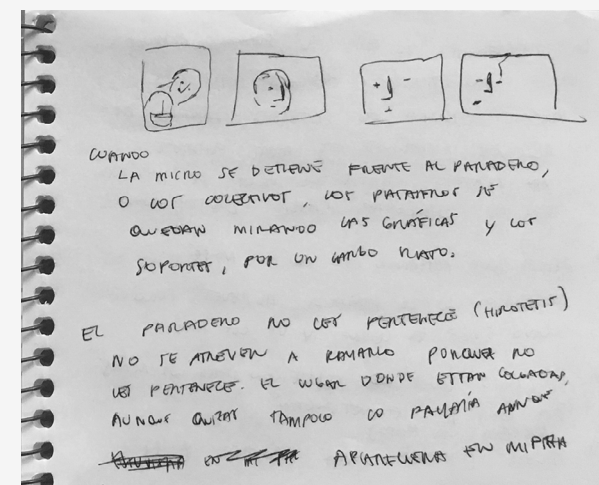 CUANDO
LA MICRO SE DETIENE FRENTE AL PARADERO,
O LOS COLECTIVOS, LOS PASAJEROS SE
QUEDAN MIRANDO LAS GRÁFICAS Y LOS
SOPORTES, POR UN LARGO RATO.
EL PARADERO NO LES PERTENECE (HIPOTESIS)
NO SE ATREVEN A RAYARLO PORQUE NO
LES PERTENECE. EL LUGAR DONDE ESTAN COLGADAS,
AUNQUE QUIZAS TAMPOCO LO
APARECIERA EN MI